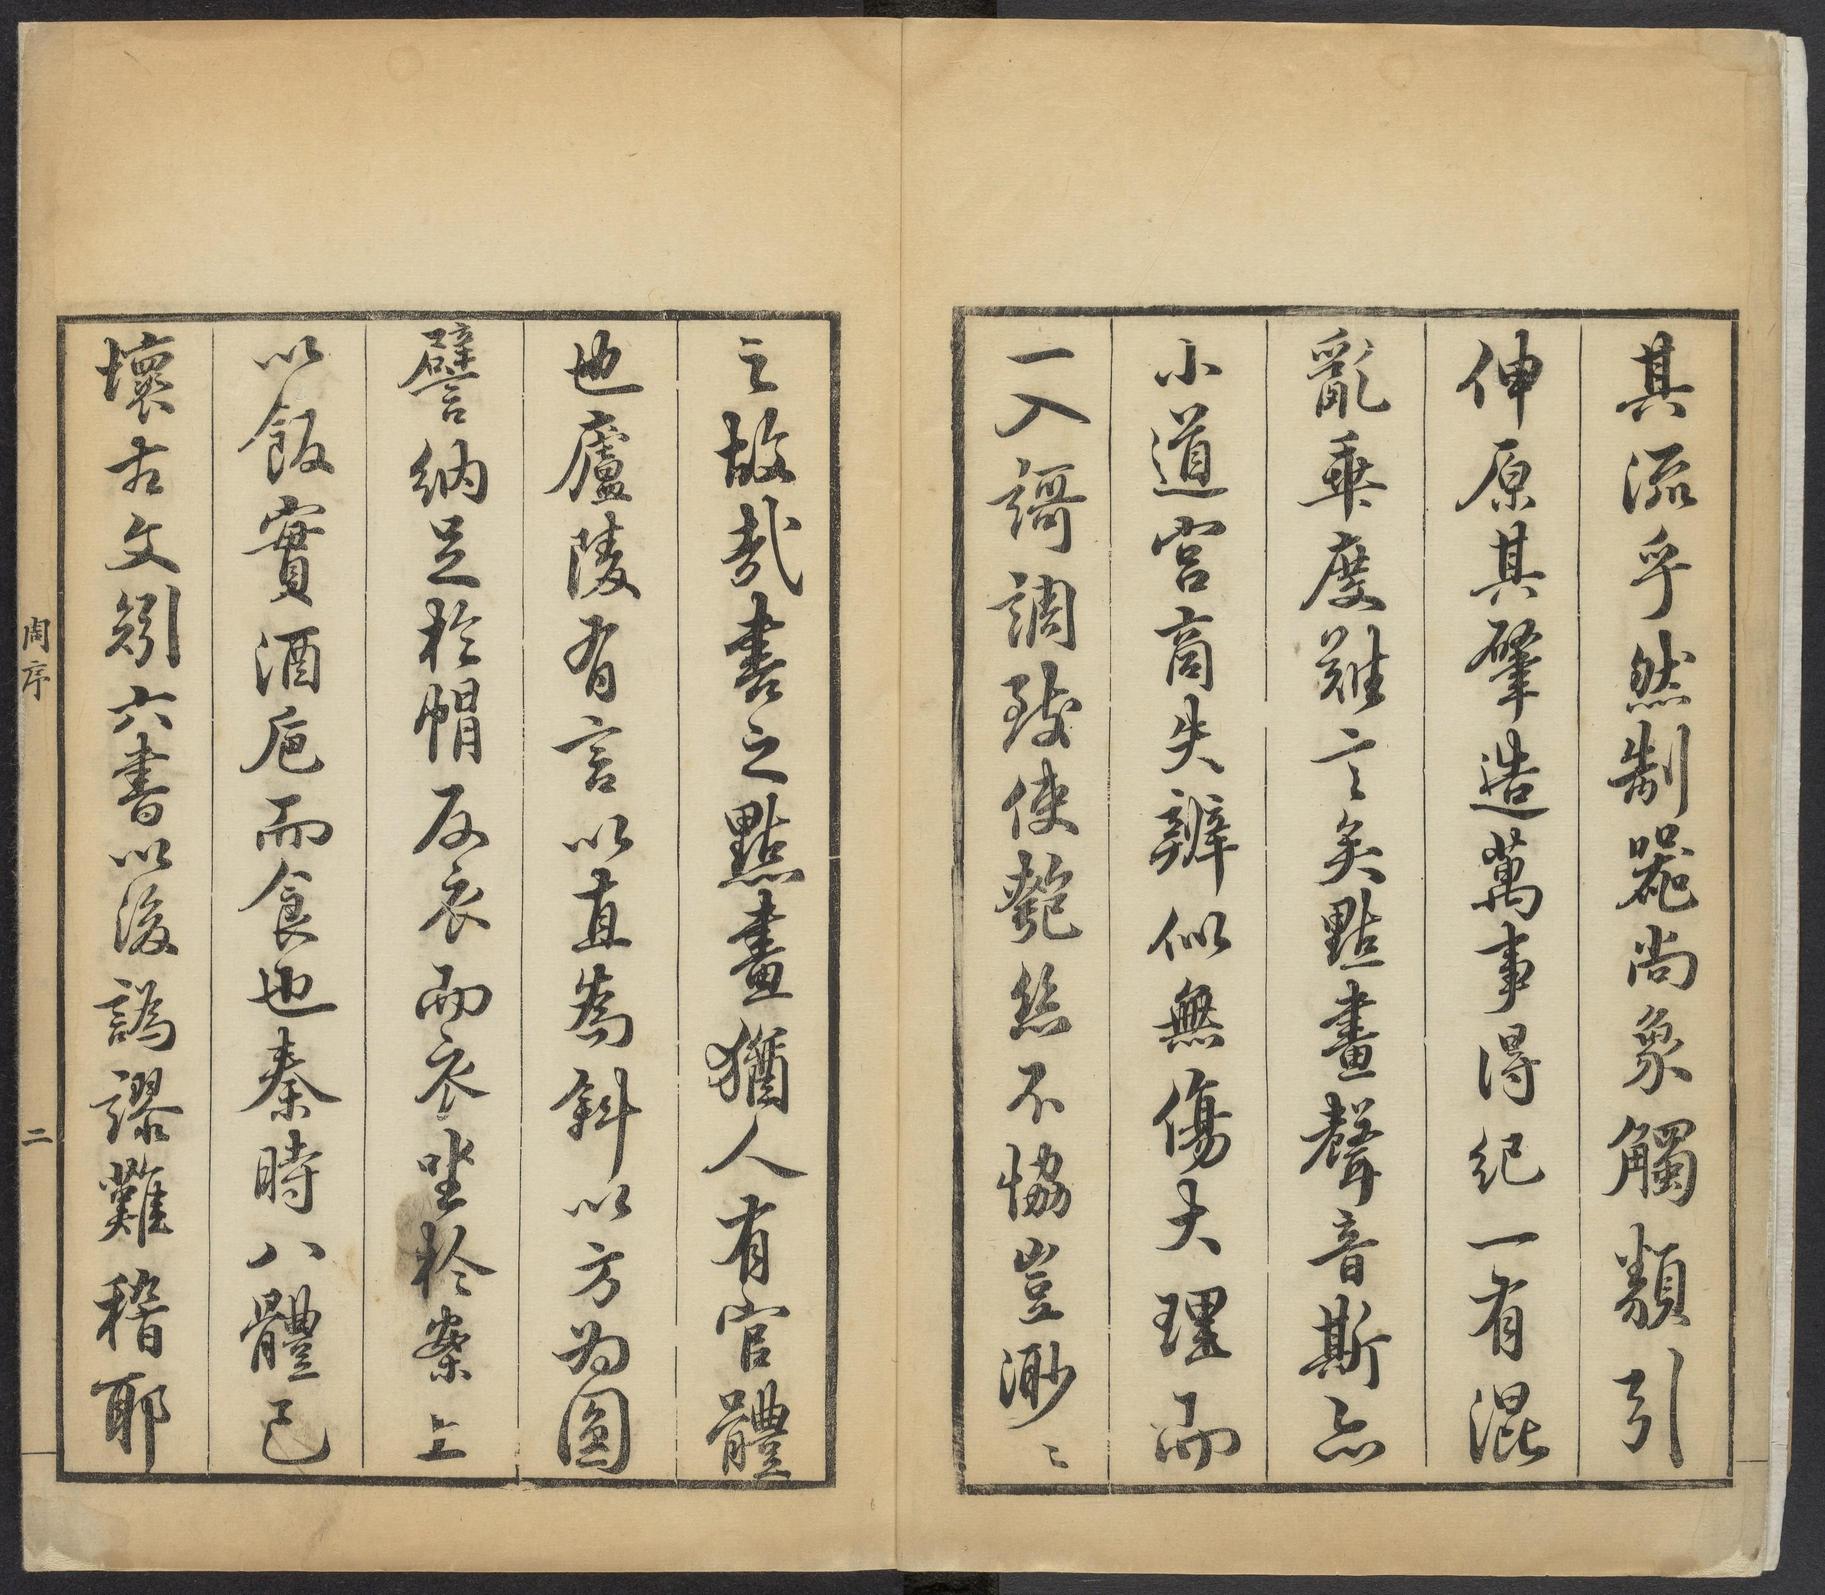 其流乎然制器尚象觸類引
伸原其肇造萬事得紀一有混
亂乖度難言矣點畫聲音斯亦
小道宮商失辨似無傷大理而
一入謌調致使匏絲不恊豈渺〻
之故哉書之點畫猶人有官體
也廬陵有言以直爲斜以方为圓
譬納足於帽反衣而衣坐於案上
以飯實酒巵而食也秦時八體已
壞古文矧六書以後譌謬難稽耶
周序
二